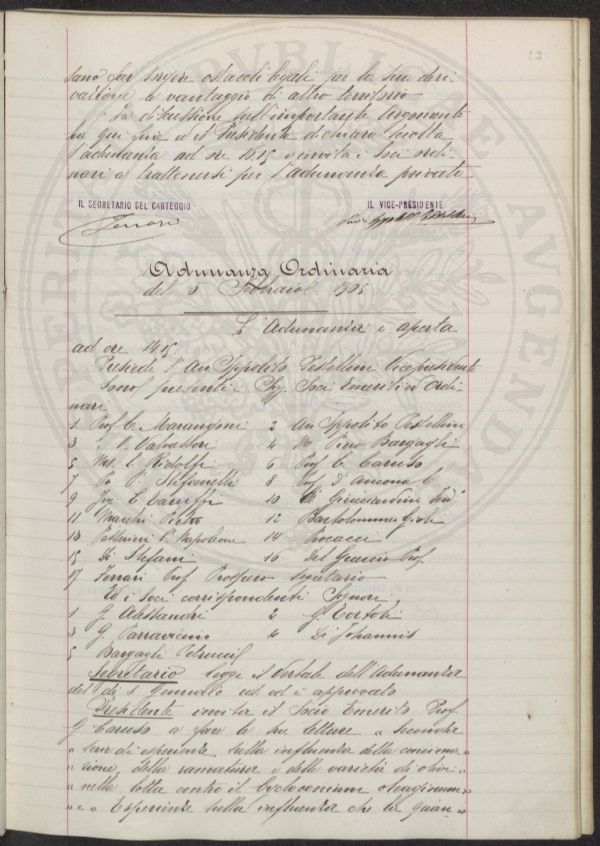 53
sano far sorgere ostacoli legali per la sua deri-
vazione a vantaggio di altro territorio
La discussione sull'importante argomento
ha qui fine e il Presidente dichiara sciolta
l'adunanza ad ore 16.15 e invita i Soci ordi-
nari a trattenersi per l'adunanza privata
IL SEGRETARIO DEL CARTEGGIO IL VICE-PRESIDENTE
Ferrari
Adunanza Ordinaria
del 5 Febbraio 1905
L'Adunanza è aperta
ad ore 14.15.
Presiede l'Avv Ippolito Pestellini Vicepresidente
Sono presenti i Sigg. Soci Emeriti ed Ordi-
nari
1 Prof C. Marangoni 2 Avv Ippolito Pestellini
3 Valvassori 4 M. Piero Bargagli
5 M. L. Ridolfi 6 Prof C. Caruso
7 P. Stefanelli 8 Prof D'Ancona C.
9 Ing E. Caruffi 10 Guicciardini
11 Marchi Pietro 12 Bartolommei Gioli
13 Passerini P. Napoleone 14 Procacci
15 Di Stefani 16 Del Guercio Prof
17 Ferrari Prof Prospero Segretario
Ed i soci corrispondenti Signori
1 G. Alessandri 2 G. Tortoli
3 G. Parravicino 4 De Johannis
5 Bargagli Petrucci
Segretario legge il Verbale dell'Adunanza
del dì 8 Gennaio ed è approvato
Presidente invita il Socio Emerito Prof
G. Caruso a fare le sue letture " Seconda
" serie di esperienze sulla influenza della concima "
" zione della ramatura e delle varietà di olivi "
" nella lotta contro il Cycloconium oleaginum "
" e " Esperienze sulla influenza che la quan- "
PVBLICAE
AVGENDA